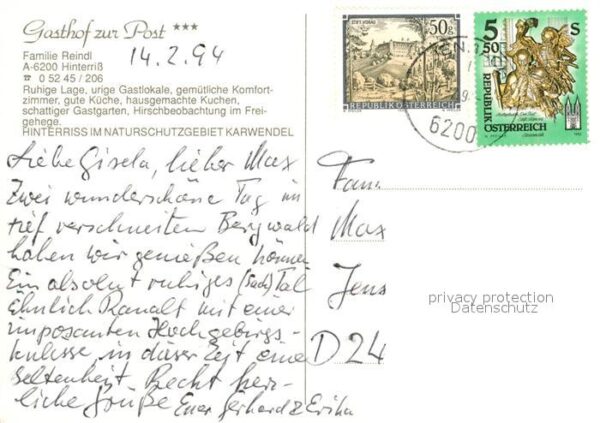 Gasthof zur Post ***
Familie Reindl
A-6200 Hinterriß
☎ 0 52 45 / 206
Ruhige Lage, urige Gastlokale, gemütliche Komfort-
zimmer, gute Küche, hausgemachte Kuchen,
schattiger Gastgarten, Hirschbeobachtung im Frei-
gehege.
HINTERRISS IM NATURSCHUTZGEBIET KARWENDEL
14.2.94
Liebe Gisela, lieber Max
Zwei wunderschöne Tag im
tief verschneiten Bergwald
haben wir genießen können
Ein absolut ruhiges (Sack) Tal
ähnlich Ranalt mit einer
imposanten Hochgebirgs-
kulisse, in dieser Zeit eine
Seltenheit. Recht herz-
liche Grüße Euer Gerhard & Erika
STIFT VORAU
50g
REPUBLIK ÖSTERREICH
5
50
S
REPUBLIK
ÖSTERREICH
6200
Fam.
Max
Jens
D 24
privacy protection
Datenschutz